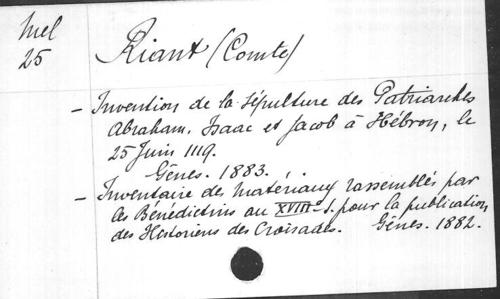 Mel
25
Riant (Comte)
- Invention de la Sépulture des Patriarches
Abraham, Isaac et Jacob à Hébron, le
25 Juin 1119.
Gênes. 1883.
- Inventaire des matériaux rassemblés par
les Bénédictins au XVIIIe s. pour la publication
des Historiens des Croisades. Gênes. 1882.